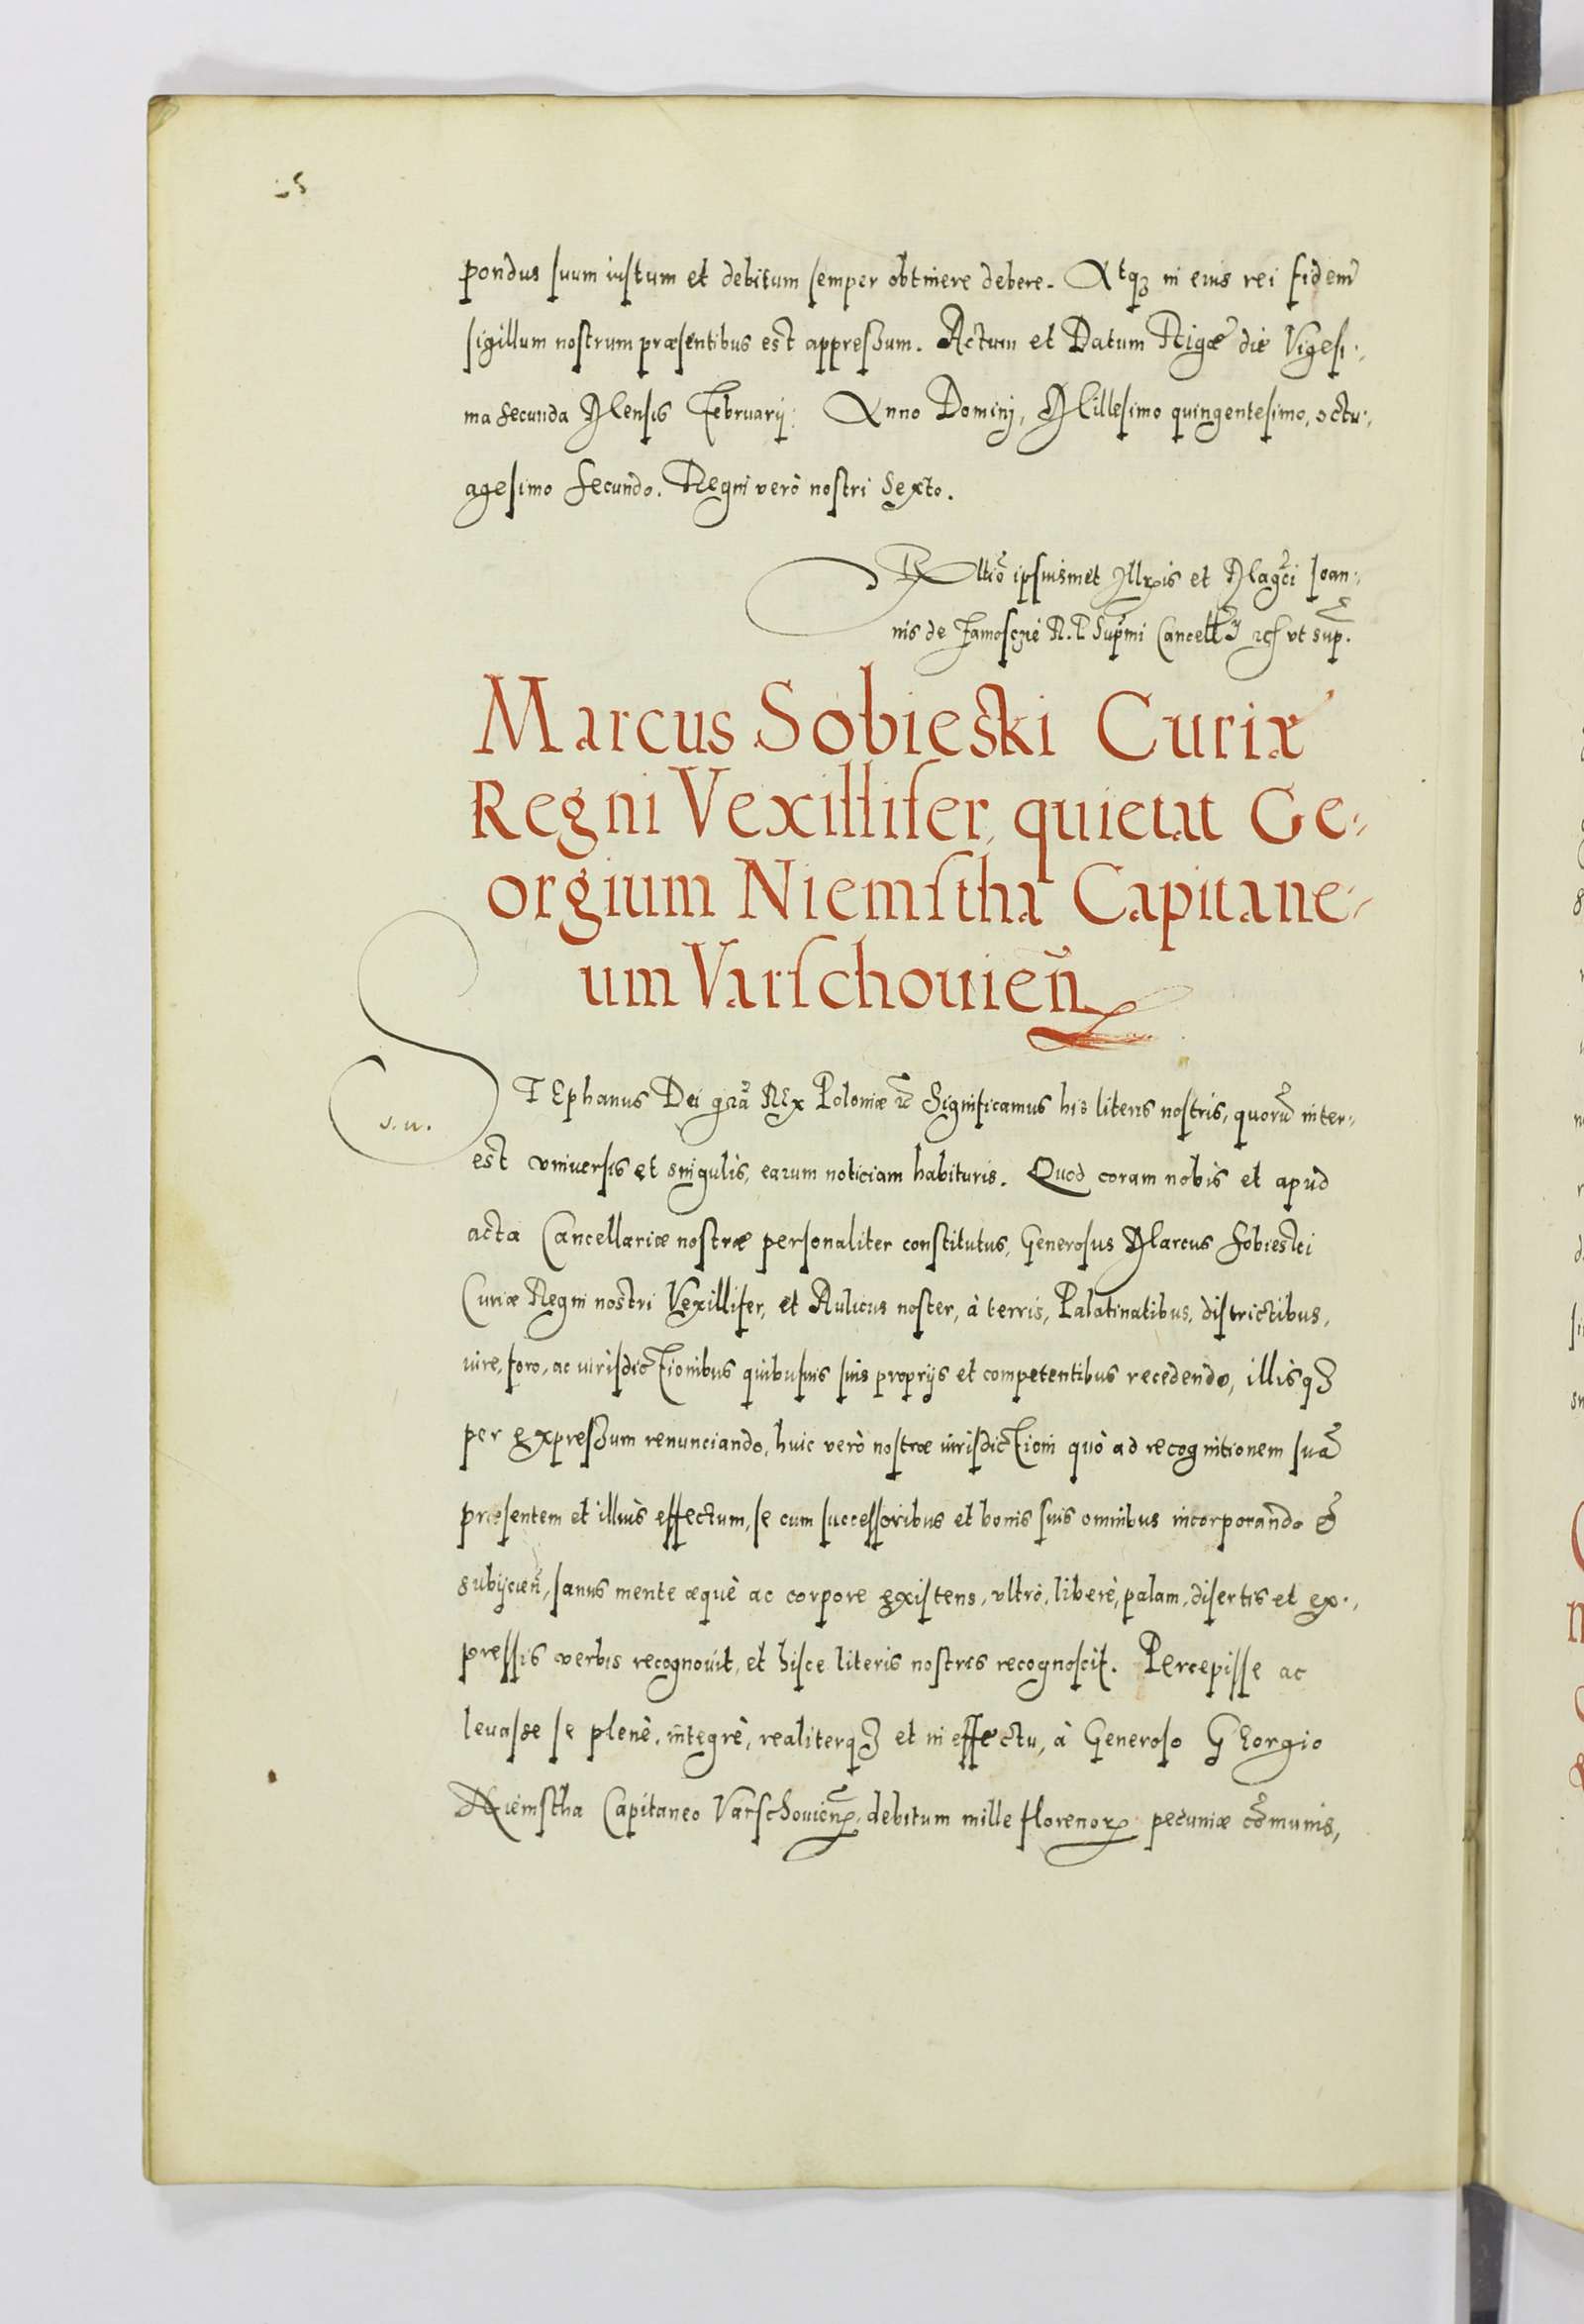 pondus suum iustum et debitum semper obtinere debere. Atq3 in eius rei fidem
sigillum nostrum præsentibus est appressum. Actum et Datum Rigæ die Vigesi-
ma secunda Mensis Februarij. Anno Dominj, Millesimo quingentesimo, octu-
agesimo secundo. Regni verò nostri Sexto.
ipsiusmet Illris et Magci Ioan-
nis de Zamosczie R. P. Supmi Cancell vt sup.
Marcus Sobieski Curiæ
Regni Vexillifer, quietat Ge-
orgium Niemstha Capitane-
um Varschouien̄
STEphanus Dei grã REx Poloniæ Significamus his literis nostris, quorũ inter-
s. n.
est vniuersis et singulis, earum noticiam habituris. Quod coram nobis et apud
acta Cancellariæ nostræ personaliter constitutus, Generosus Marcus Sobieski
Curiæ Regni nostri Vexillifer, et Aulicus noster, à terris, Palatinatibus, districtibus,
iure, foro, ac iurisdictionibus quibusuis suis proprijs et competentibus recedendo, illisq3
per expressum renunciando, huic verò nostræ iurisdictioni quò ad recognitionem suã
præsentem et illius effectum, se cum successoribus et bonis suis omnibus incorporando &
subijcien̄, sanus mente æquè ac corpore existens, vltrò, liberè, palam, disertis et ex-
pressis verbis recognouit, et hisce literis nostris recognoscit. Percepisse ac
leuasse se plenè, integrè, realiterq3 et in effectu, à Generoso GEorgio
Niemstha Capitaneo Varschouien̄, debitum mille florenorꝝ pecuniæ cõmunis,